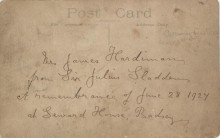 Post Card
Mrs. James Hardiman
from Sir Julius Sladden
A remembrance of June 28 1927
at Seward House, Badsey